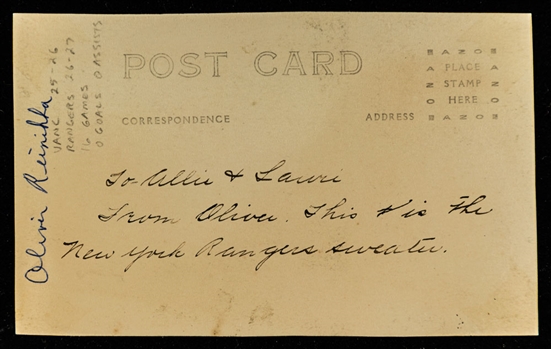 POST CARD
AZOE
A PLACE A
Z STAMP Z
O HERE O
AZOE
CORRESPONDENCE
ADDRESS
To Allie & Lauri
From Oliver. This is the
New York Rangers sweater.
Olivir Reinikka
VANC 25-26
RANGERS 26-27
16 GAMES
0 GOALS 0 ASSISTS